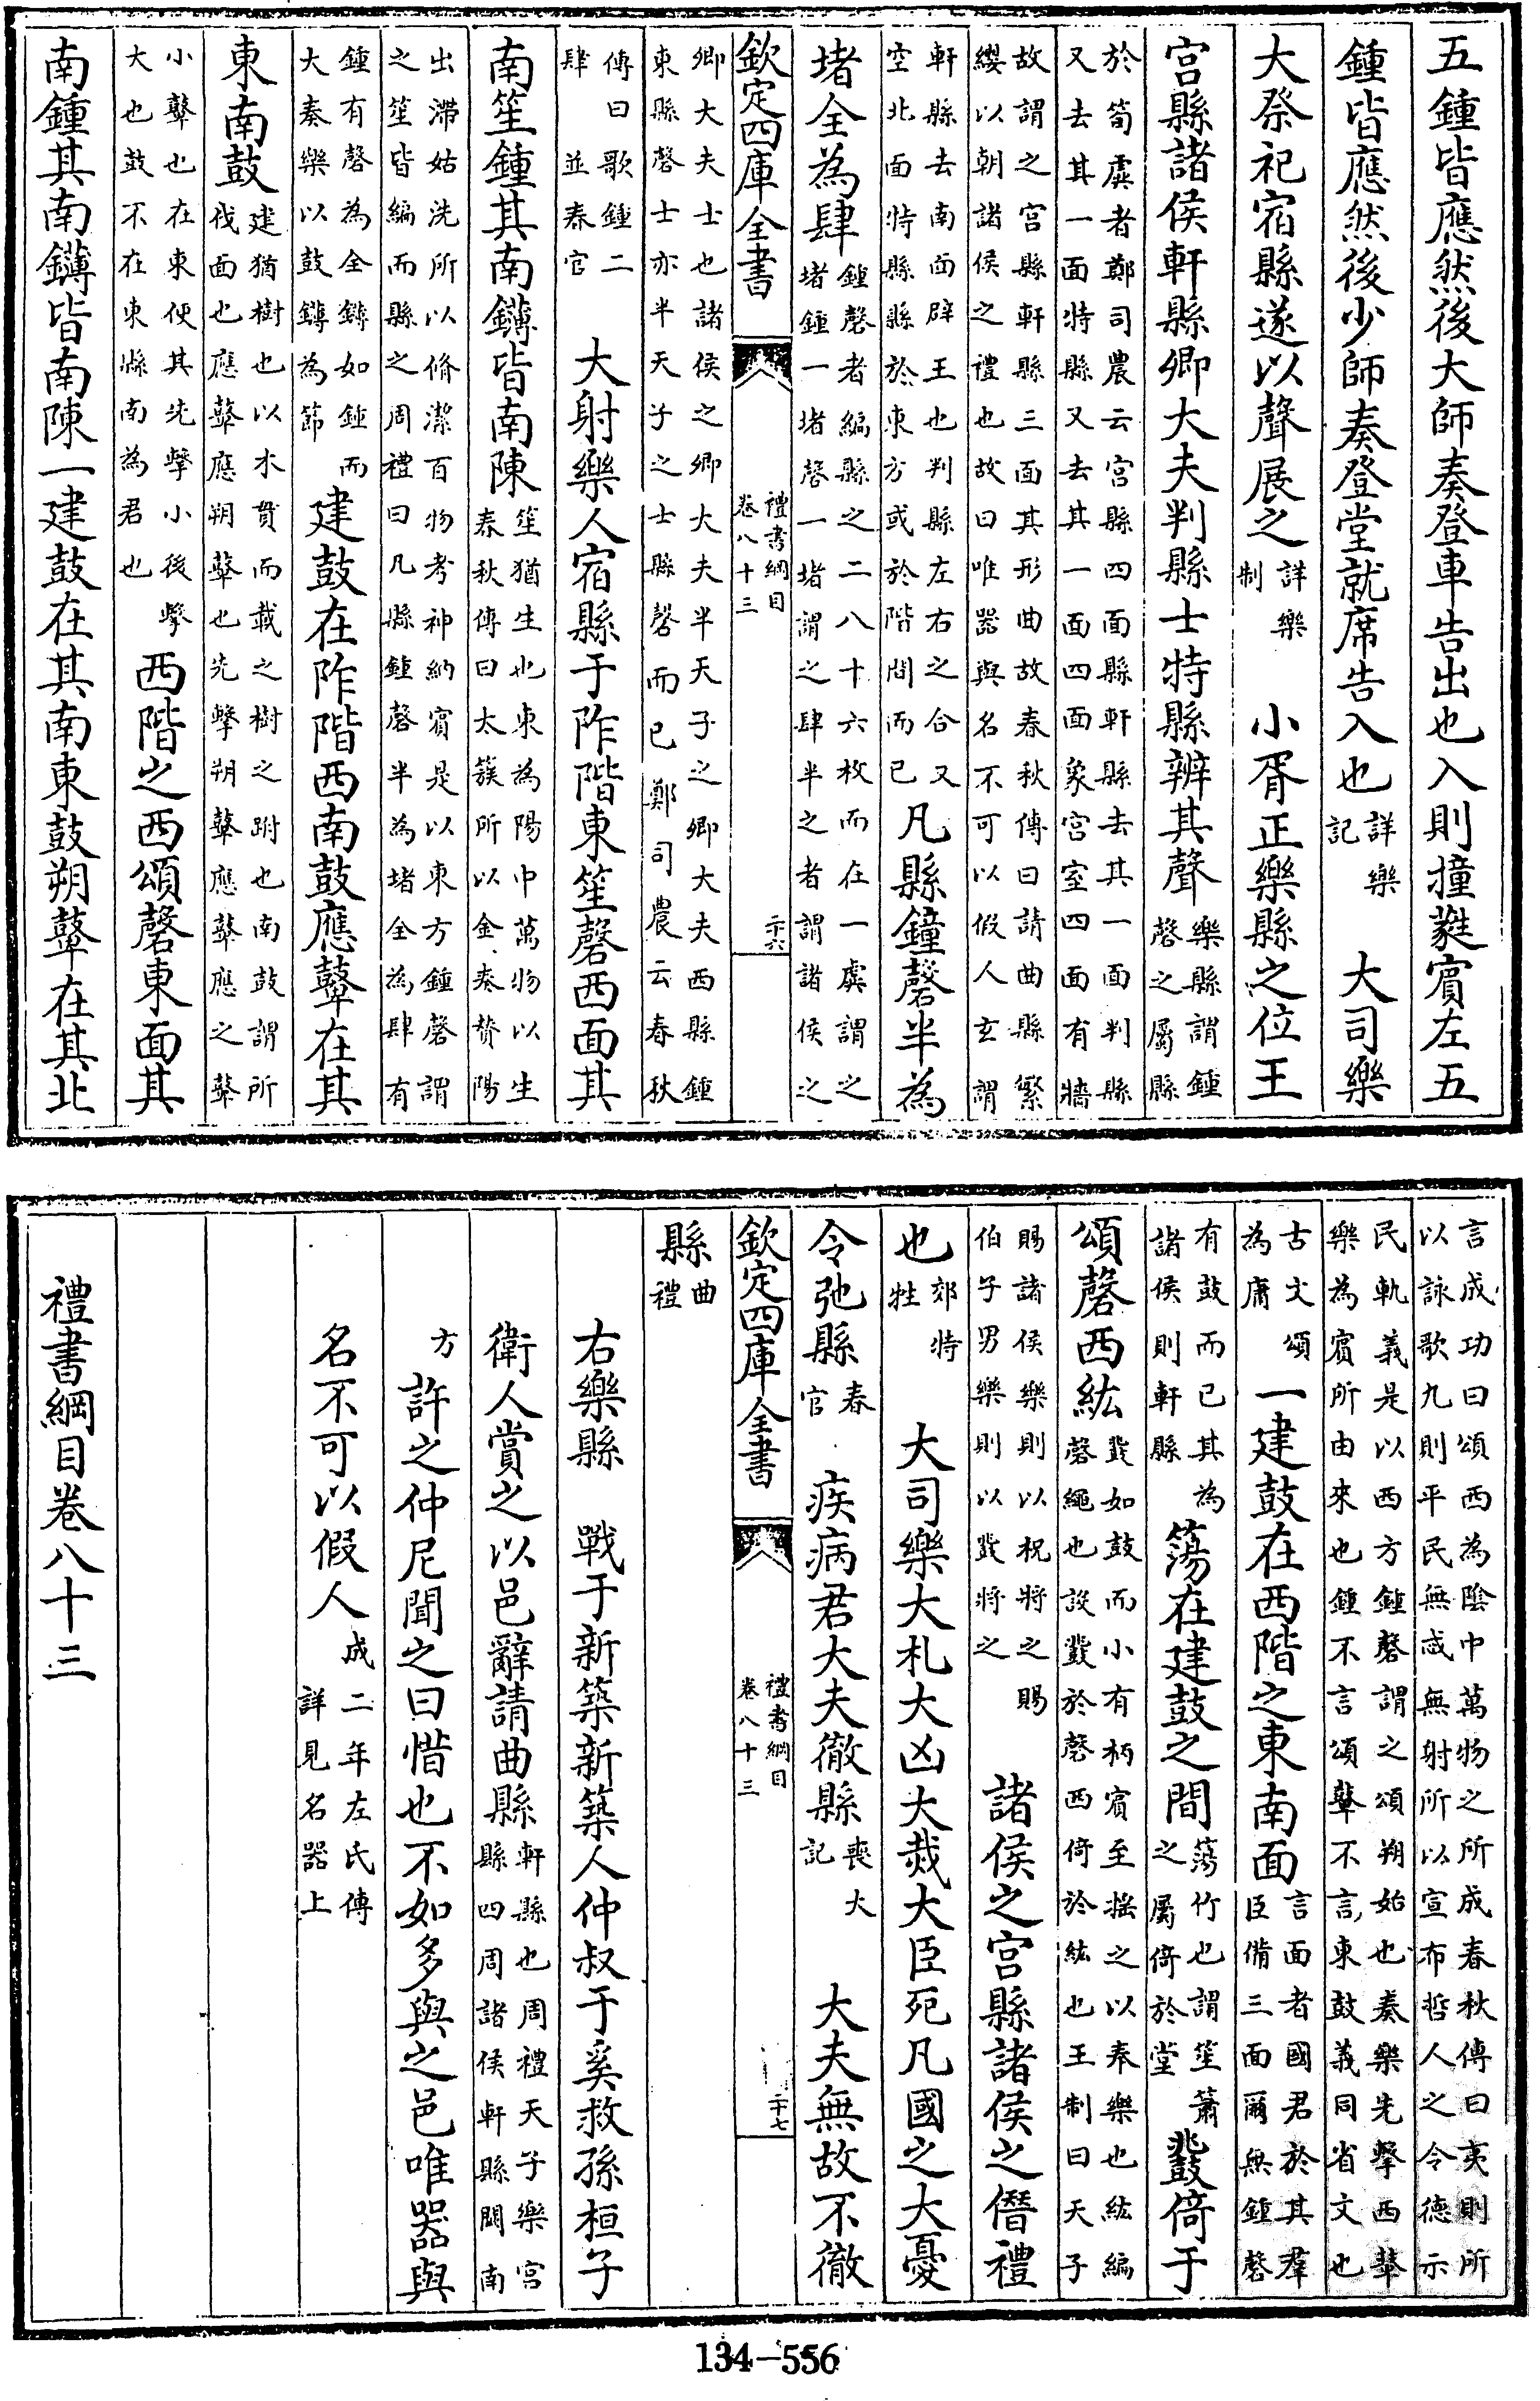 五鍾皆應然後大師奏登車告出也入則撞蕤賓左五
鍾皆應然後少師奏登堂就席告入也詳樂記 大司樂
大祭祀宿縣遂以聲展之詳樂制 小胥正樂縣之位王
宮縣諸侯軒縣卿大夫判縣士特縣辨其聲樂縣謂鍾磬之屬縣
於筍虡者鄭司農云宮縣四面縣軒縣去其一面判縣
又去其一面特縣又去其一面四面象宮室四面有牆
故謂之宮縣軒縣三面其形曲故春秋傳曰請曲縣繁
纓以朝諸侯之禮也故曰唯器與名不可以假人玄謂
軒縣去南面辟王也判縣左右之合又
空北面特縣縣於東方或於階間而已凡縣鐘磬半為
堵全為肆鍾磬者編縣之二八十六枚而在一虡謂之
堵鍾一堵磬一堵謂之肆半之者謂諸侯之
欽定四庫全書
禮書綱目
卷八十三
二十六
卿大夫士也諸侯之卿大夫半天子之卿大夫西縣鍾
東縣磬士亦半天子之士縣磬而已鄭司農云春秋
傳曰歌鍾二肆並春官 大射樂人宿縣于阼階東笙磬西面其
南笙鍾其南鑮皆南陳笙猶生也東為陽中萬物以生
春秋傳曰太簇所以金奏贊陽
出滯姑洗所以脩潔百物考神納賓是以東方鍾磬謂
之笙皆編而縣之周禮曰凡縣鍾磬半為堵全為肆有
鍾有磬為全鑮如鍾而
大奏樂以鼓鑮為節建鼓在阼階西南鼓應鼙在其
東南鼓建猶樹也以木貫而載之樹之跗也南鼓謂所
伐面也應鼙應朔鼙也先擊朔鼙應鼙應之鼙
小鼙也在東便其先擊小後擊
大也鼓不在東縣南為君也西階之西頌磬東面其
南鍾其南鑮皆南陳一建鼓在其南東鼓朔鼙在其北
言成功曰頌西為陰中萬物之所成春秋傳曰夷則所
以詠歌九則平民無忒無射所以宣布哲人之令德示
民軌義是以西方鍾磬謂之頌朔始也奏樂先擊西鼙
樂為賓所由來也鍾不言頌鼙不言東鼓義同省文也
古文頌為庸一建鼓在西階之東南面言面者國君於其羣
臣備三面爾無鍾磬
有鼓而已其為
諸侯則軒縣簜在建鼓之間簜竹也謂笙簫之屬倚於堂鼗倚于
頌磬西紘鼗如鼓而小有柄賓至搖之以奉樂也紘編
磬繩也設鼗於磬西倚於紘也王制曰天子
賜諸侯樂則以柷將之賜
伯子男樂則以鼗將之 諸侯之宮縣諸侯之僭禮
也郊特牲 大司樂大札大凶大烖大臣死凡國之大憂
令弛縣春官 疾病君大夫徹縣喪大記 大夫無故不徹
欽定四庫全書
禮書綱目
卷八十三
二十七
縣曲禮
右樂縣 戰于新築新築人仲叔于奚救孫桓子
衛人賞之以邑辭請曲縣軒縣也周禮天子樂宮
縣四周諸侯軒縣闕南
方許之仲尼聞之曰惜也不如多與之邑唯器與
名不可以假人成二年左氏傳
詳見名器上
禮書綱目卷八十三
134-556